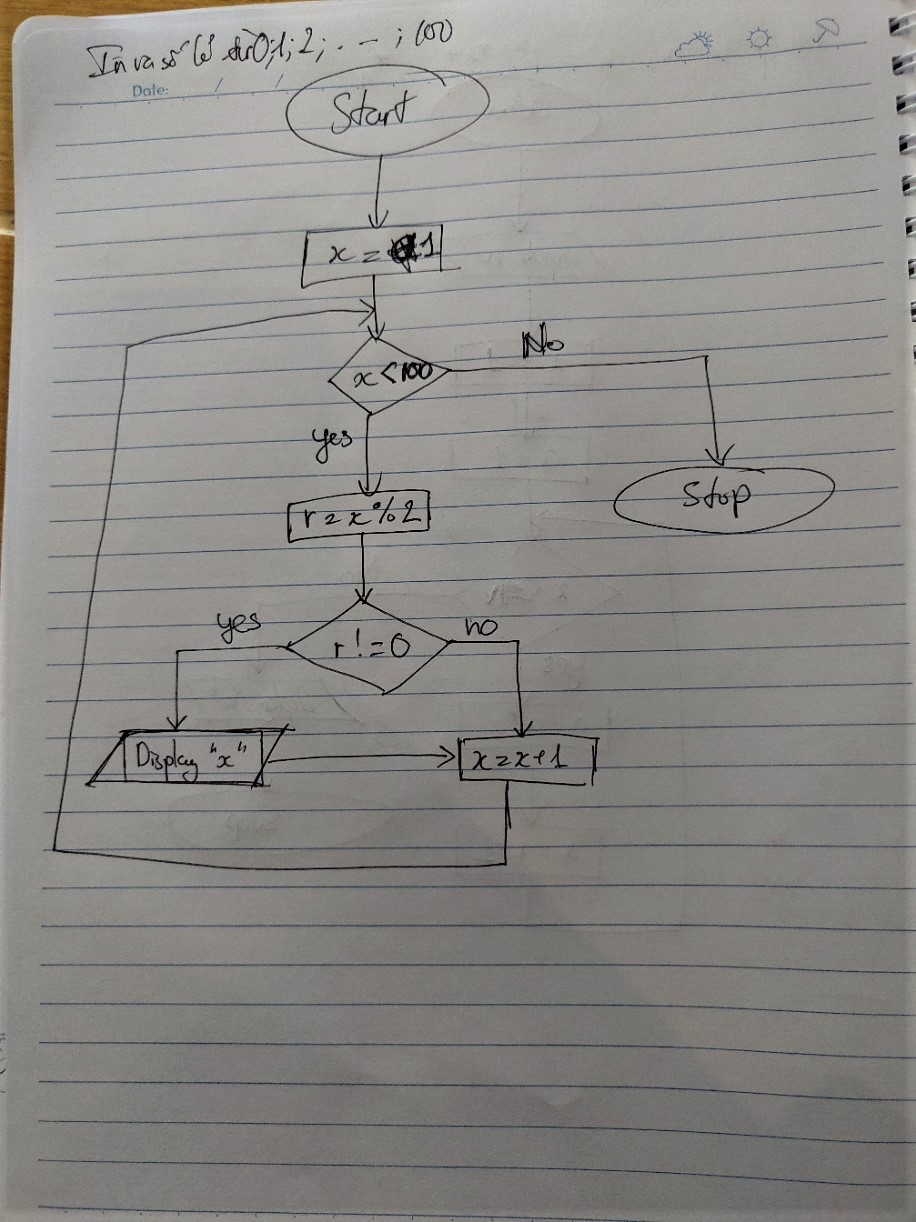 In ra số lẻ từ 0;1;2;...;100
Date: / /
Start
x = 1
x < 100
No
yes
r = x % 2
Stop
yes
r != 0
no
Display "x"
x = x + 1